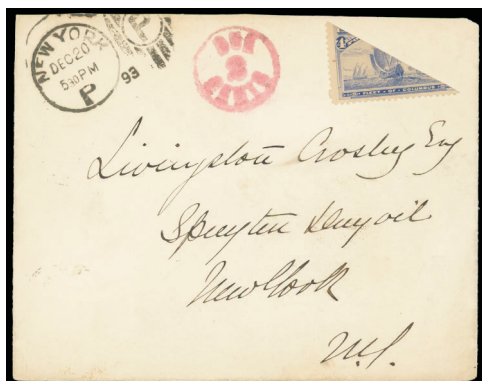 NEW YORK
DEC 20
5 30 PM
P
93
2
DUE
2
CENTS
FLEET OF COLUMBUS
Livingston Crosby Esq
Spuyten Duyvil
New York
N.Y.